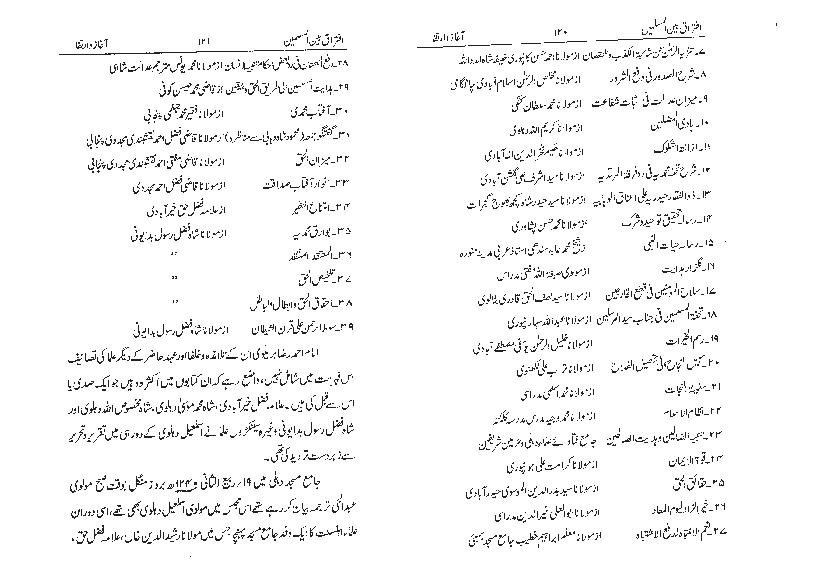 افتراق بین المسلمین ۱۲۰ آغاز و ارتقا
۷۔ تنزیہ الرحمٰن عن شائبۃ الکذب والنقصان از مولانا احمد حسن کانپوری خلیفہ شاہ امداد اللہ
۸۔ شرح الصدور فی دفع الشرور از مولانا مخلص الرحمٰن اسلام آبادی چاٹگامی
۹۔ میزان عدالت فی اثبات شفاعت از مولانا محمد سلطان کٹکی
۱۰۔ ہادی المضلین از مولانا کریم اللہ دہلوی
۱۱۔ ازالۃ الشکوک از مولانا حکیم فخر الدین الہ آبادی
۱۲۔ شرح تحفہ محمدیہ فی رد فرقۃ المرتدیہ از مولانا سید اشرف علی گلشن آبادی
۱۳۔ ذوالفقار حیدریہ علی اعناق الوہابیہ از مولانا سید حیدر شاہ کچھ بھوج گجرات
۱۴۔ رسالہ تحقیق توحید و شرک از مولانا محمد حسن پشاوری
۱۵۔ رسالہ حیات النبی از شیخ محمد عابد سندھی استاذ عربی مدینہ منورہ
۱۶۔ گلزار ہدایت از مولوی صبغۃ اللہ مفتی مدراس
۱۷۔ سلاح المومنین فی قطع الخارجین از مولانا سید لطف الحق قادری بٹالوی
۱۸۔ تحفۃ المسلمین فی جناب سید المرسلین از مولانا عبداللہ سہارنپوری
۱۹۔ رسم الخیرات از مولانا خلیل الرحمٰن یوسفی مصطفےٰ آبادی
۲۰۔ سبیل النجاح الی تحصیل الفلاح از مولانا تراب علی لکھنوی
۲۱۔ سفینۃ النجات از مولانا محمد اسلمی مدراسی
۲۲۔ نظام الاسلام از مولانا محمد وجیہ مدرس مدرسہ کلکتہ
۲۳۔ تنبیہ الضالین و ہدایت الصالحین جامع فتاوےٰ علماء دہلی و حرمین شریفین
۲۴۔ قوۃ الایمان از مولانا کرامت علی جونپوری
۲۵۔ حقائق الحق از مولانا سید بدر الدین الموسوی حیدرآبادی
۲۶۔ خیر الزاد لیوم المعاد از مولانا ابوالعلی خیر الدین مدراسی
۲۷۔ نعم الانتباہ لدفع الاشتباہ از مولانا معلم ابراہیم خطیب جامع مسجد بمبئی
افتراق بین المسلمین ۱۲۱ آغاز و ارتقا
۲۸۔ دفع البہتان فی رد بعض احکام تنبیہ الانسان از مولانا محمد یونس مترجم عدالت شاہی
۲۹۔ ہدایت المسلمین الیٰ طریق الحق والیقین از قاضی محمد حسین کوفی
۳۰۔ آفتاب محمدی از مولانا فقیر محمد جہلمی پنجابی
۳۱۔ گفتگو جمعہ (محمود شاہ وہابی سے مناظرہ) از مولانا قاضی فضل احمد نقشبندی مجددی پنجابی
۳۲۔ میزان الحق از مولانا قاضی مفتی احمد نقشبندی مجددی پنجابی
۳۳۔ انوار آفتاب صداقت از مولانا قاضی فضل احمد مجددی
۳۴۔ امتناع النظیر از علامہ فضل حق خیرآبادی
۳۵۔ بوارق محمدیہ از مولانا شاہ فضل رسول بدایونی
۳۶۔ المعتقد المنتقد ״
۳۷۔ تلخیص الحق ״
۳۸۔ احقاق الحق و ابطال الباطل ״
۳۹۔ سوط الرحمن علی قرن الشیطان از مولانا شاہ فضل رسول بدایونی
امام احمد رضا بریلوی ان کے تلامذہ و خلفا اور عہد حاضر کے دیگر علما کی تصانیف
اس فہرست میں شامل نہیں۔ واضح رہے کہ ان کتابوں میں اکثر وہ ہیں جو ایک صدی یا
اس سے قبل کی ہیں۔ علامہ فضل خیرآبادی، شاہ محمد موسیٰ دہلوی، شاہ مخصوص اللہ دہلوی اور
شاہ فضل رسول بدایونی وغیرہ سینکڑوں علما نے اسمٰعیل دہلوی کے دور ہی میں تقریر و تحریر
سے زبردست تردید کی تھی۔
جامع مسجد دہلی میں ۱۹؍ ربیع الثانی ۱۲۴۰ھ بروز منگل بوقت صبح مولوی
عبدالحی ترجمہ بیان کر رہے تھے اس مجلس میں مولوی اسمٰعیل دہلوی بھی تھے، اسی دوران
علماء اہلسنت کا ایک وفد جامع مسجد پہنچا جس میں مولانا رشید الدین خاں، علامہ فضل حق،